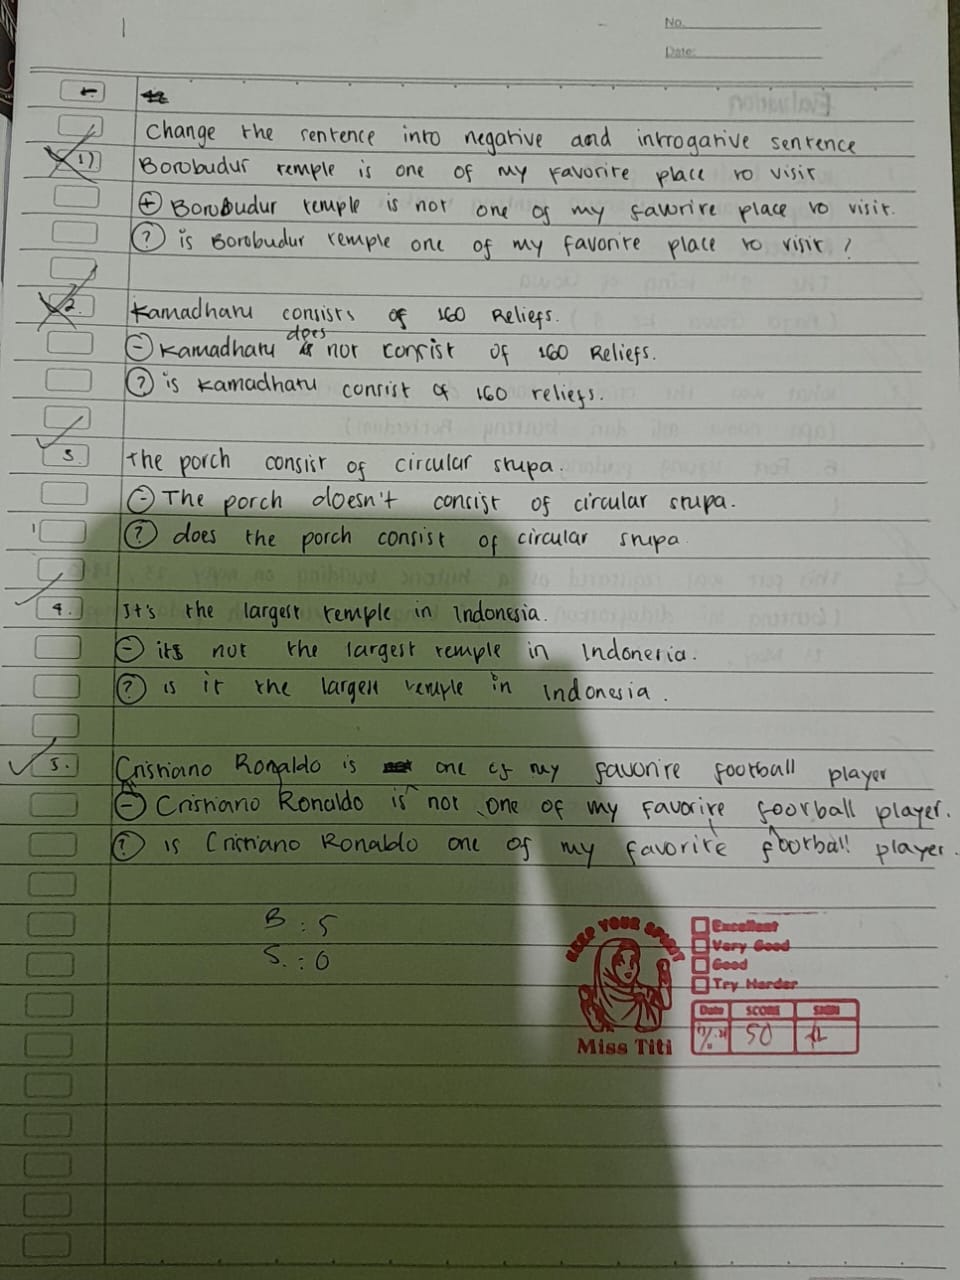 No.
Date:
Change the sentence into negative and introgative sentence
1) Borobudur temple is one of my favorite place to visit
+ Borobudur temple is not one of my favorite place to visit.
? is Borobudur temple one of my favorite place to visit?
2. Kamadhatu consists of 160 Reliefs.
does
- Kamadhatu not consist of 160 Reliefs.
? is Kamadhatu consist of 160 reliefs.
3. the porch consist of circular stupa.
- The porch doesn't consist of circular stupa.
? does the porch consist of circular stupa
4. It's the largest temple in Indonesia.
- its not the largest temple in Indonesia.
? is it the largest temple in Indonesia.
5. Cristiano Ronaldo is one of my favorite football player
- Cristiano Ronaldo is not one of my favorite football player.
? is Cristiano Ronaldo one of my favorite football player.
B : 5
S. : 0
KEEP YOUR SPIRIT
Miss Titi
Excellent
Very Good
Good
Try Harder
Date SCORE SIGN
50